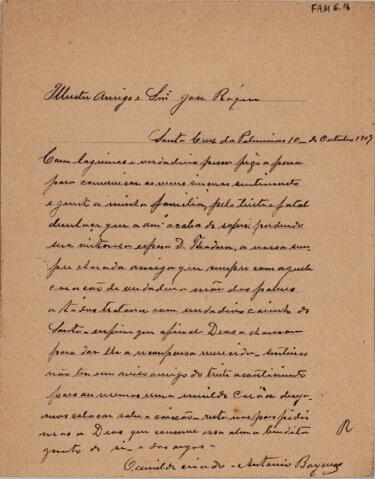 FAM 6.16
Illustre Amigo e Snr José
Santa Cruz da Palmeiras 10 de Outubro 1907
Com lagrimas e verdadeiro pesar pego a penna
para communicar os meus sinceros sentimentos
e junto a minha familia, pelo triste e fatal
que a acaba de sofrer perdendo
sua esposa D. a nossa sem
pre chorada amiga que sempre com aquele
coração de verdadeira mãi dos pobres
a todos tratava com verdadeiro carinho de
Santa enfim que afinal Deus a chamou
para dar lhe a recompensa merecida
não ter um aviso amigo do triste acontecimento
para ao menos uma umilde
collocar sobre o caixão
a Deus que conserve essa alma bemdita
junto de si e dos anjos
O umilde criado Antonio
R